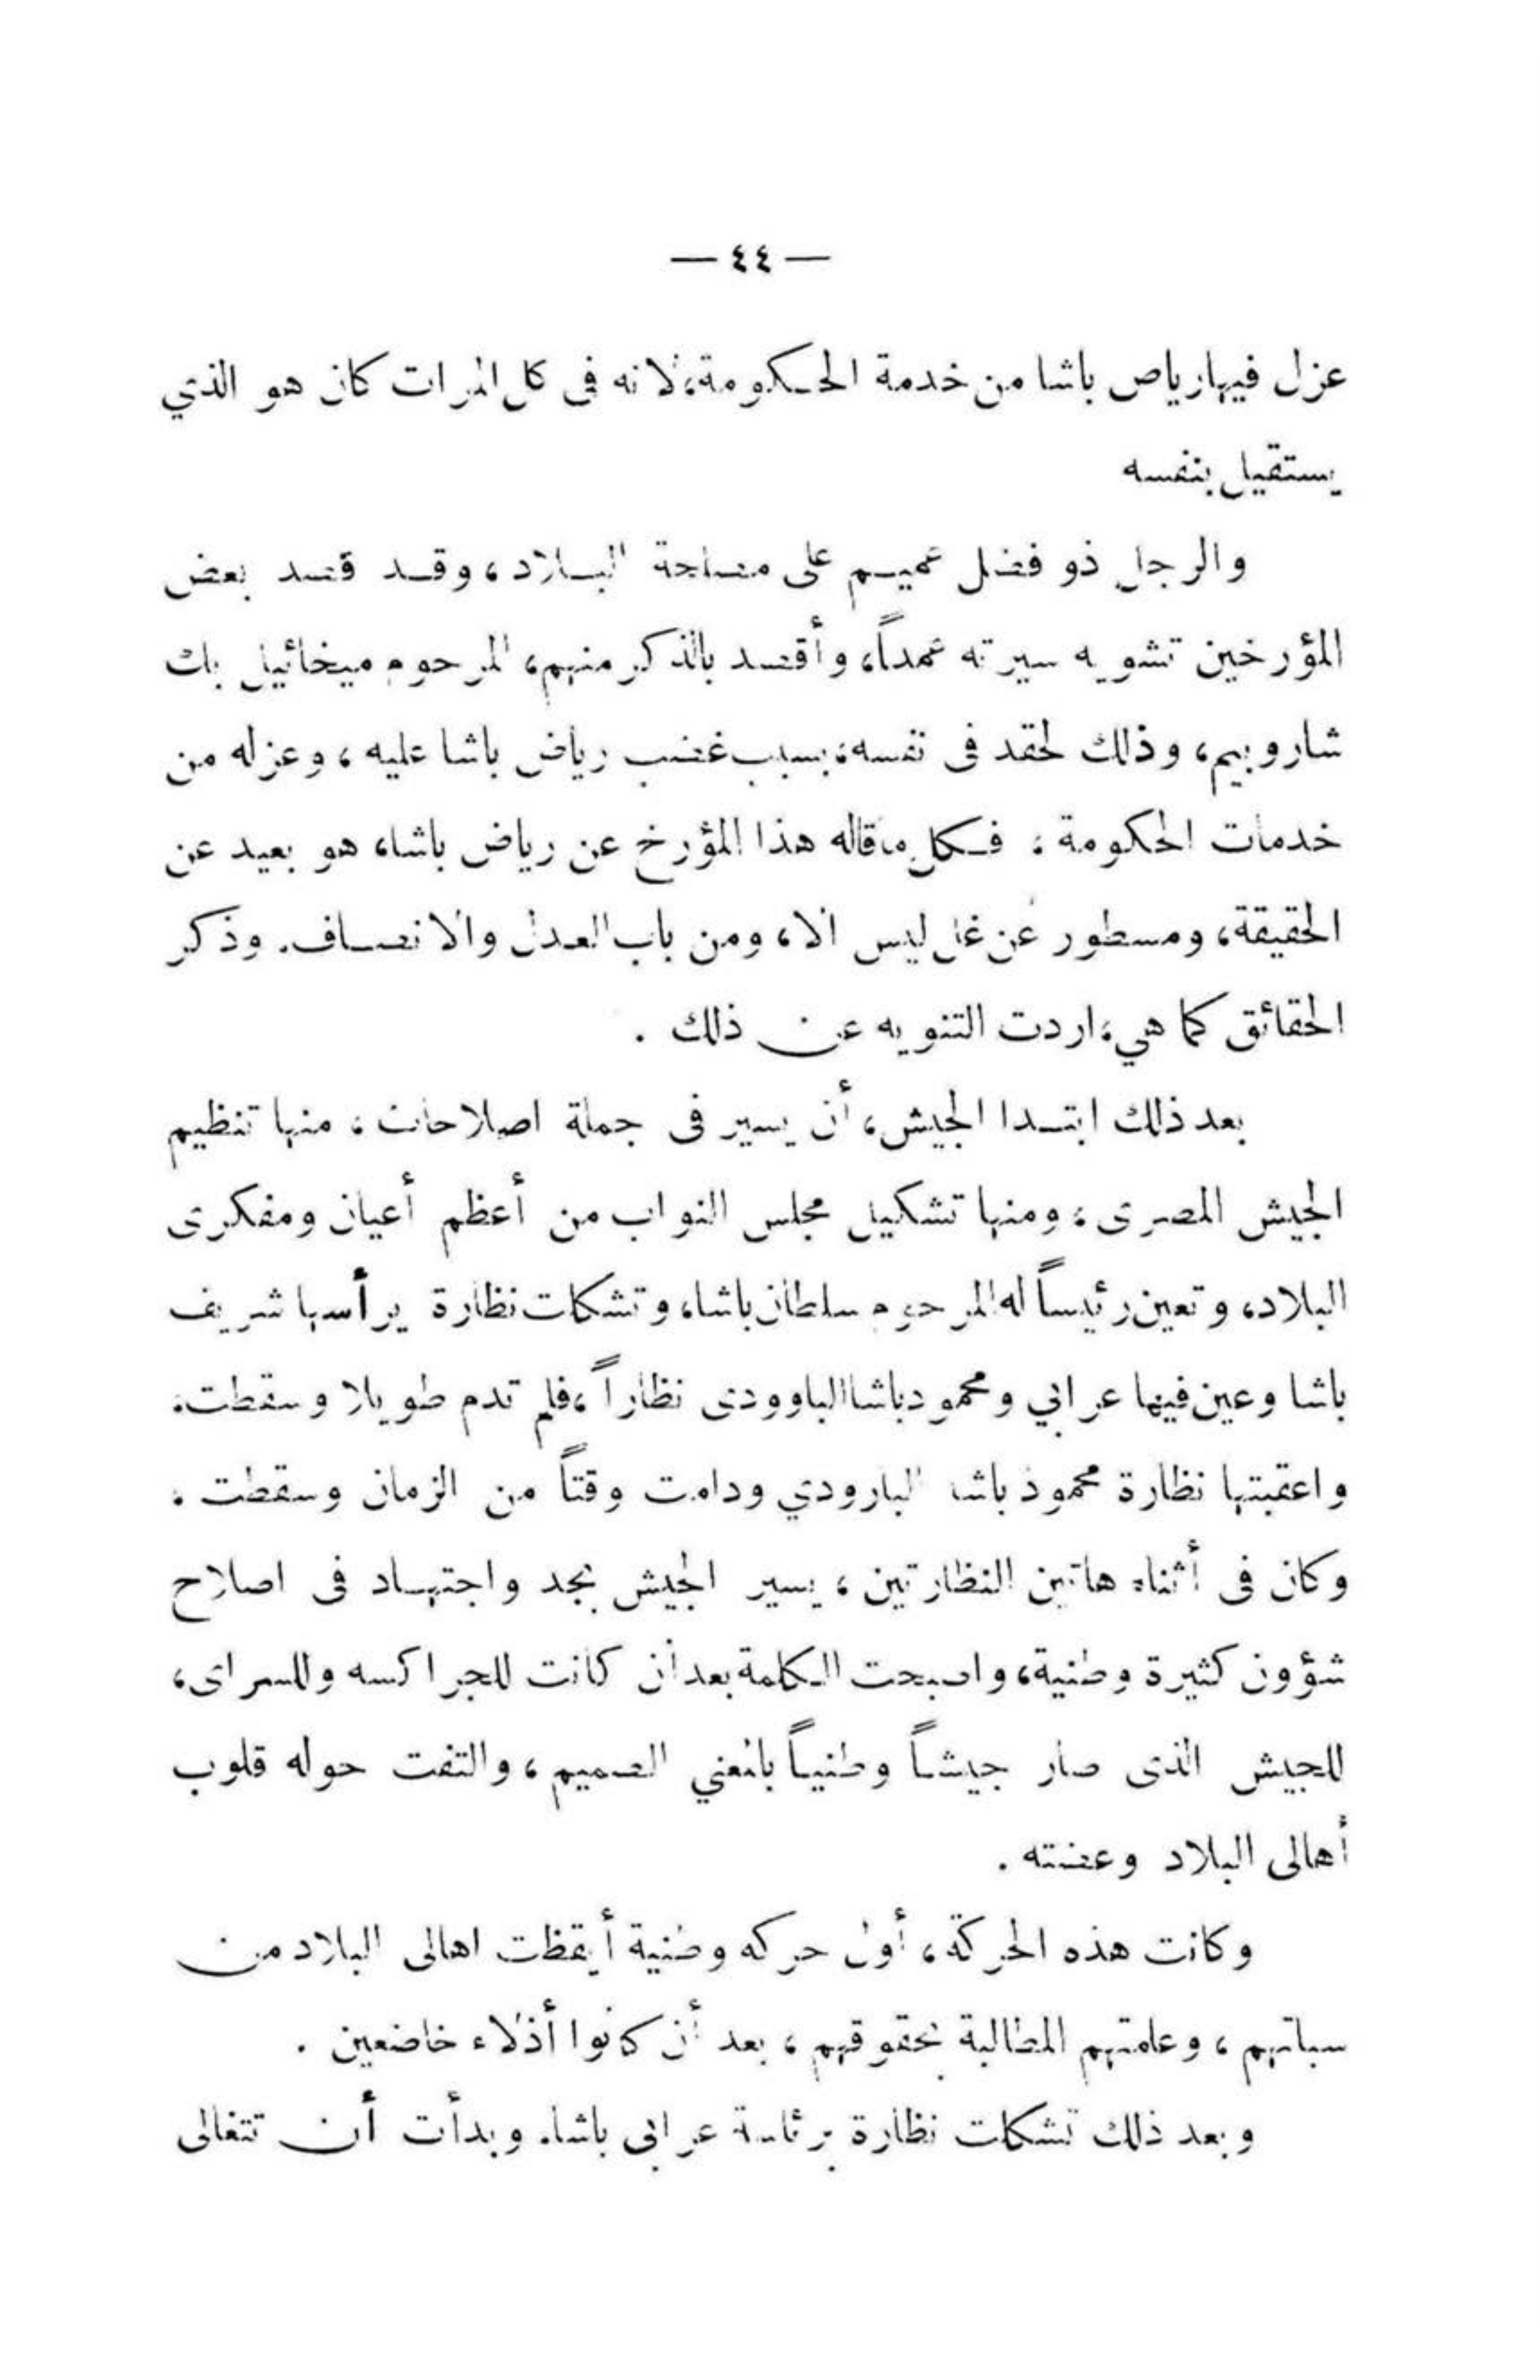 — ٤٤ —
عزل فيها رياض باشا من خدمة الحكومة، لانه فى كل المرات كان هو الذي
يستقيل بنفسه
والرجل ذو فضل عميم على مصلحة البلاد، وقد قصد بعض
المؤرخين تشويه سيرته عمداً، وأقصد بالذكر منهم، المرحوم ميخائيل بك
شاروبيم، وذلك لحقد فى نفسه، بسبب غضب رياض باشا عليه، وعزله من
خدمات الحكومة، فكل ما قاله هذا المؤرخ عن رياض باشا، هو بعيد عن
الحقيقة، ومسطور عن غل ليس الا، ومن باب العدل والانصاف. وذكر
الحقائق كما هي، اردت التنويه عن ذلك .
بعد ذلك ابتدا الجيش، أن يسير فى جملة اصلاحات، منها تنظيم
الجيش المصرى، ومنها تشكيل مجلس النواب من أعظم أعيان ومفكرى
البلاد، وتعين رئيساً له المرحوم سلطان باشا، وتشكلت نظارة يرأسها شريف
باشا وعين فيها عرابي ومحمود باشا الباوودى نظاراً، فلم تدم طويلا وسقطت،
واعقبتها نظارة محمود باشا البارودي ودامت وقتاً من الزمان وسقطت .
وكان فى أثناء هاتين النظارتين، يسير الجيش بجد واجتهاد فى اصلاح
شؤون كثيرة وطنية، واصبحت الكلمة بعد أن كانت للجراكسه وللسراى،
للجيش الذى صار جيشاً وطنياً بالمعني الصميم، والتفت حوله قلوب
أهالى البلاد وعضته .
وكانت هذه الحركة، أول حركه وطنية أيقظت اهالى البلاد من
سباتهم، وعلمتهم المطالبة بحقوقهم، بعد أن كانوا أذلاء خاضعين .
وبعد ذلك تشكلت نظارة برئاسة عرابى باشا. وبدأت أن تتغالى